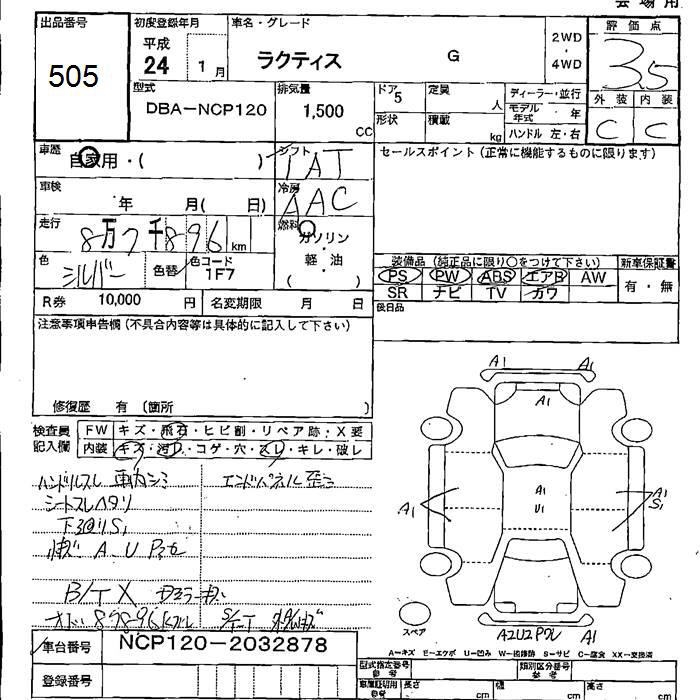 会場用
出品番号
505
初度登録年月
平成
24 1月
車名・グレード
ラクティス G
2WD
・
4WD
評価点
3.5
外装 内装
C C
型式
DBA-NCP120
排気量
1,500
CC
ドア
5
定員
人
形状
積載
kg
ディーラー・並行
モデル年式 年
ハンドル 左・右
車歴
自家用・( )
シフト
IAT
冷房
AAC
車検
年 月( 日)
走行
8万7千896km
燃料
ガソリン
・
軽・油
( )
色
シルバー
色替
色コード
1F7
R券 10,000 円
名変期限 月 日
セールスポイント(正常に機能するものに限ります)
装備品(純正品に限り○をつけて下さい)
PS PW ABS エアB AW
SR ナビ TV カワ
新車保証書
有・無
後日品
注意事項申告欄(不具合内容等は具体的に記入して下さい)
修復歴 有(箇所 )
検査員
記入欄
FW キズ・飛石・ヒビ割・リペア跡・X要
内装 キズ・汚レ・コゲ・穴・スレ・キレ・破レ
ハンドルスレ 車内シミ
エンドパネル歪ミ
シートスレヘタリ
下廻りS1
B/T X
車台番号 NCP120-2032878
登録番号
A1 A1
A1
A1
U1
A1
A1
S1
スペア
A2U2 A1
A=キズ E=エクボ U=凹み W=補修跡 S=サビ C=腐食 XX=交換済
型式指定番号
参考
類別区分番号
参考
長さ cm 幅 cm 高さ cm